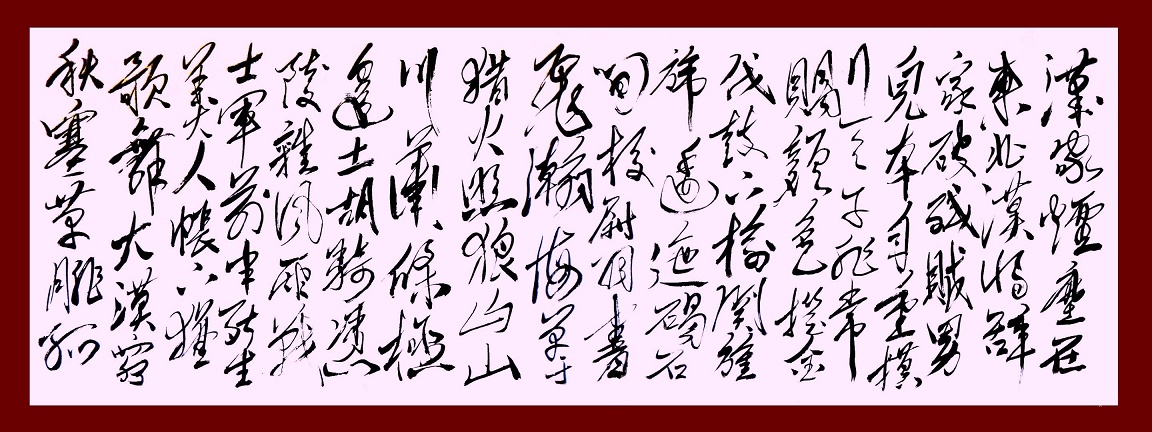 漢家煙塵在
東北漢將辭
家破殘賊男
兒本自重橫
行天子非常
賜顏色摐金
伐鼓下榆關旌
旆逶迤碣石
間校尉羽書
飛瀚海單于
獵火照狼山山
川蕭條極
邊土胡騎憑
陵雜風雨戰
士軍前半死生
美人帳下猶
歌舞大漠窮
秋塞草腓孤